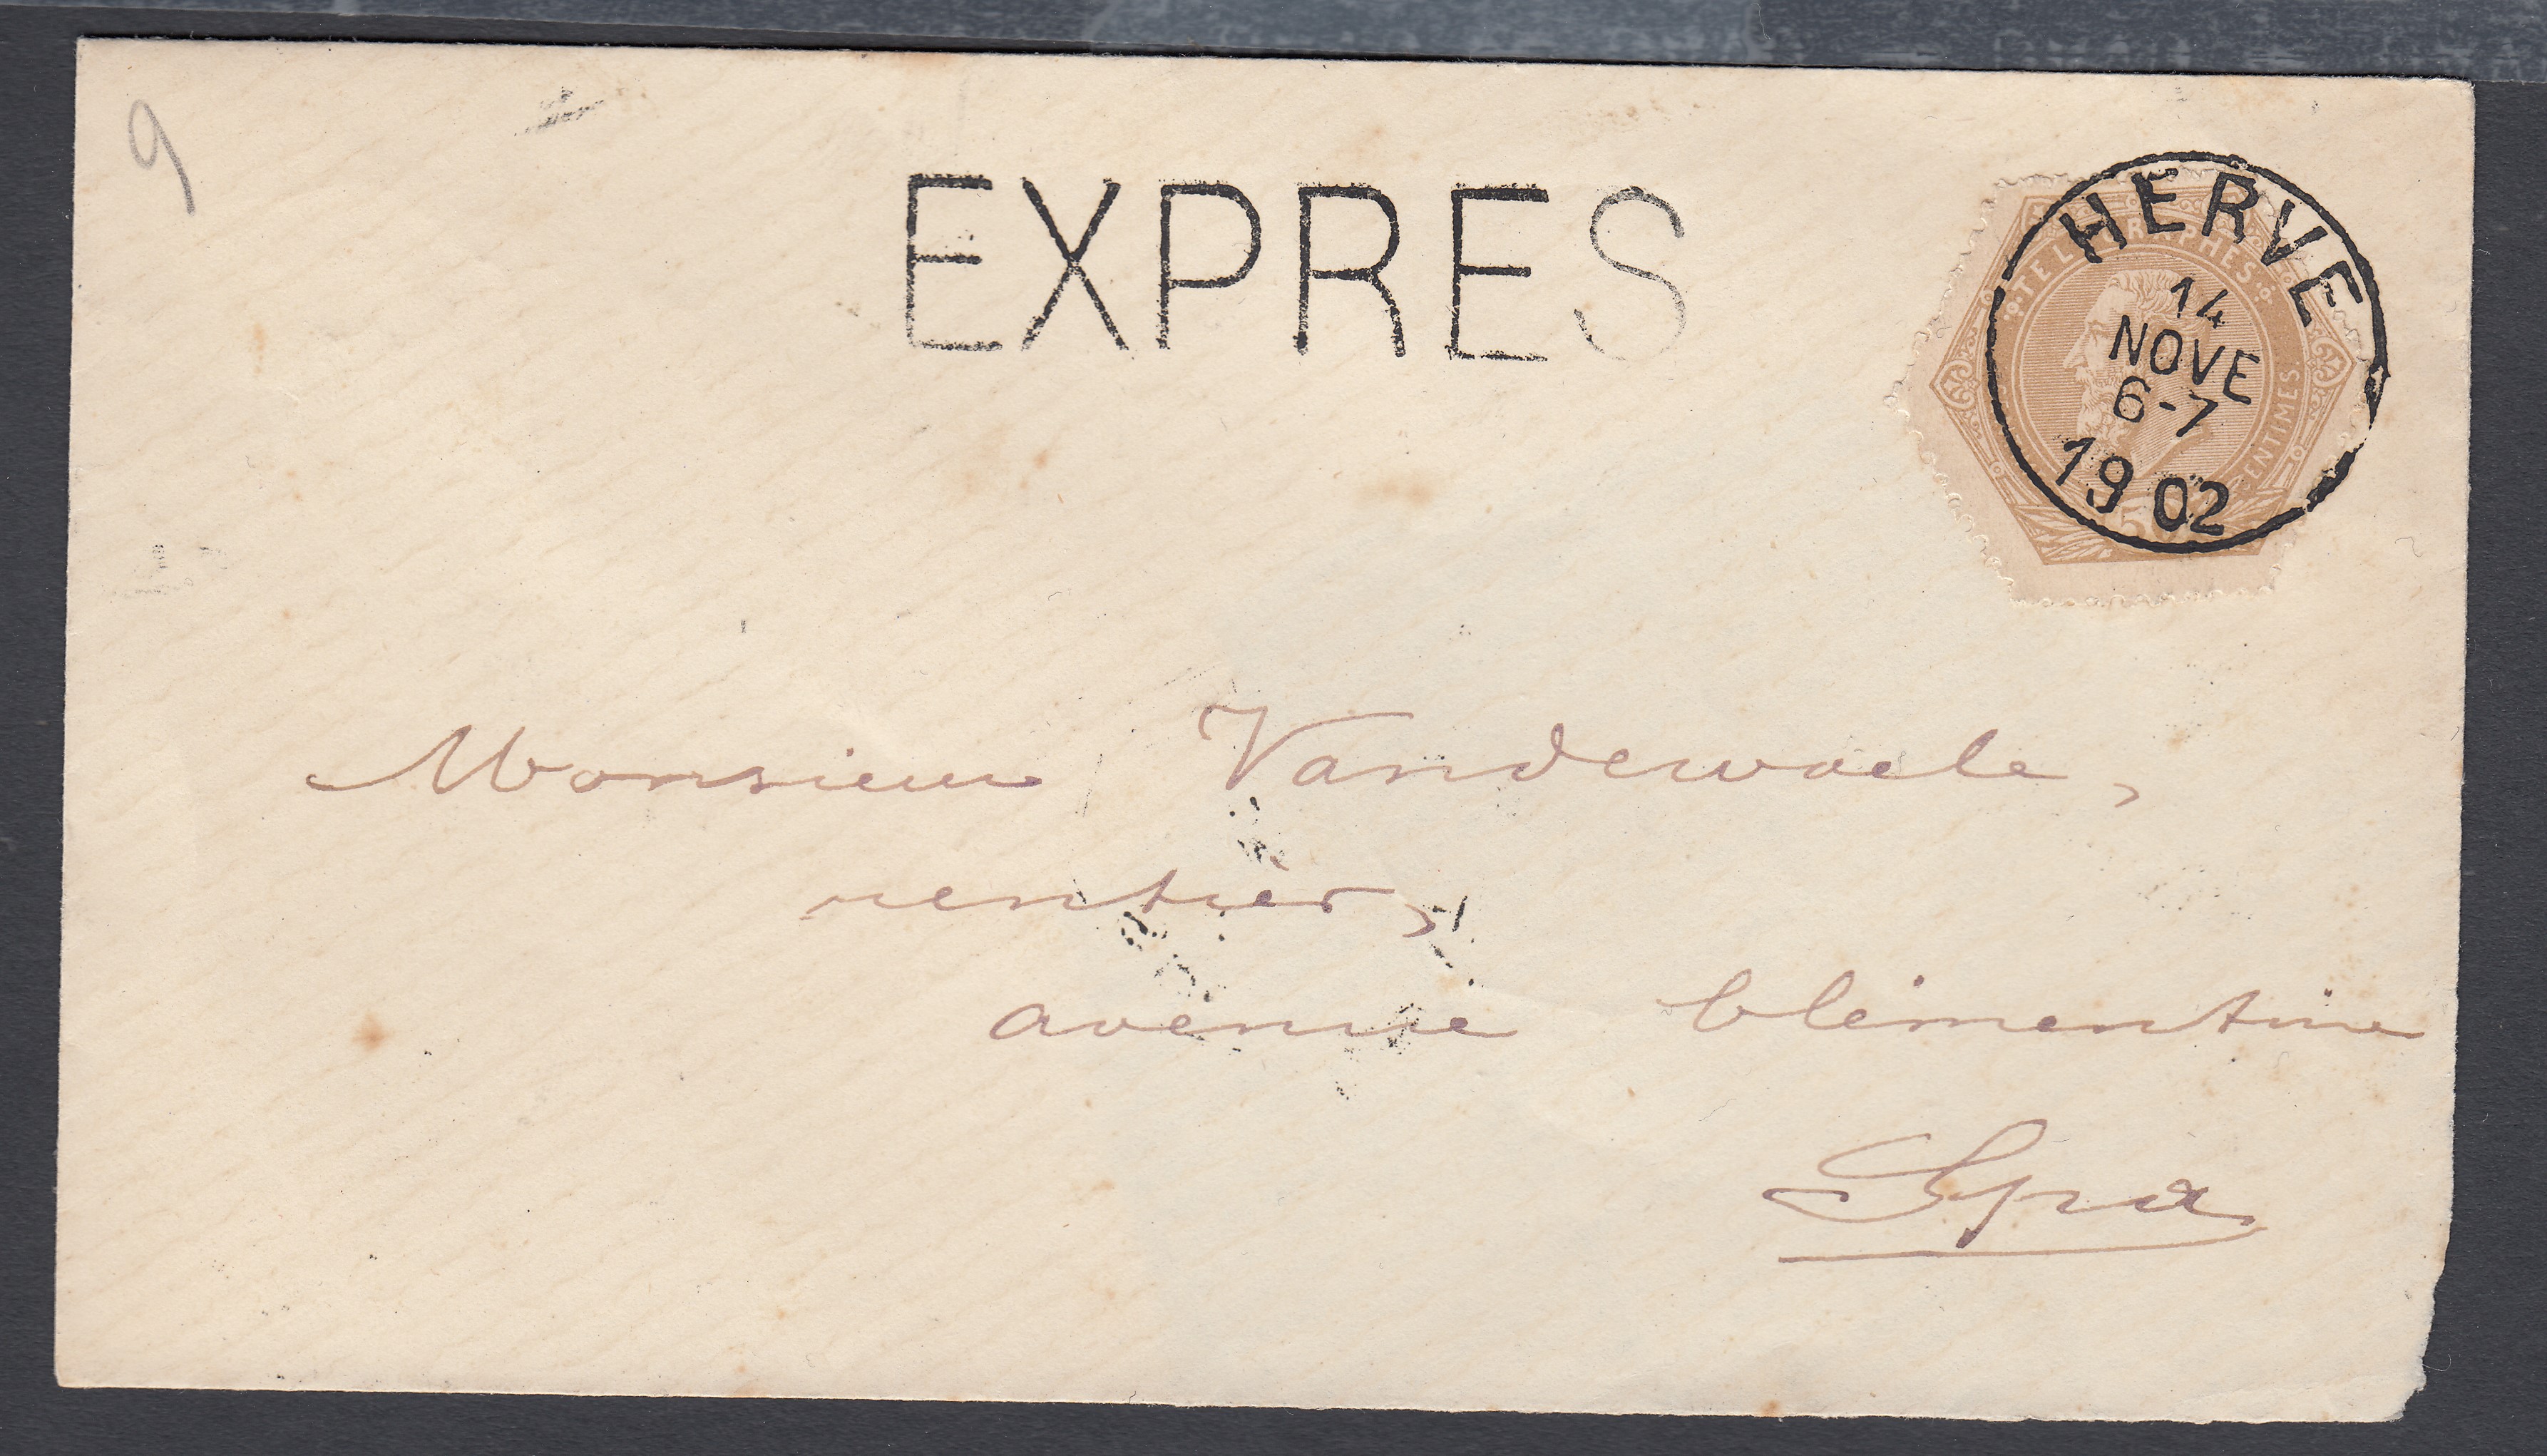 9
EXPRES
HERVE
14
NOVE
6-7
1902
TELEGRAPHES
CENTIMES
Monsieur Vandewaele,
rentier,
avenue Clémentine
Spa